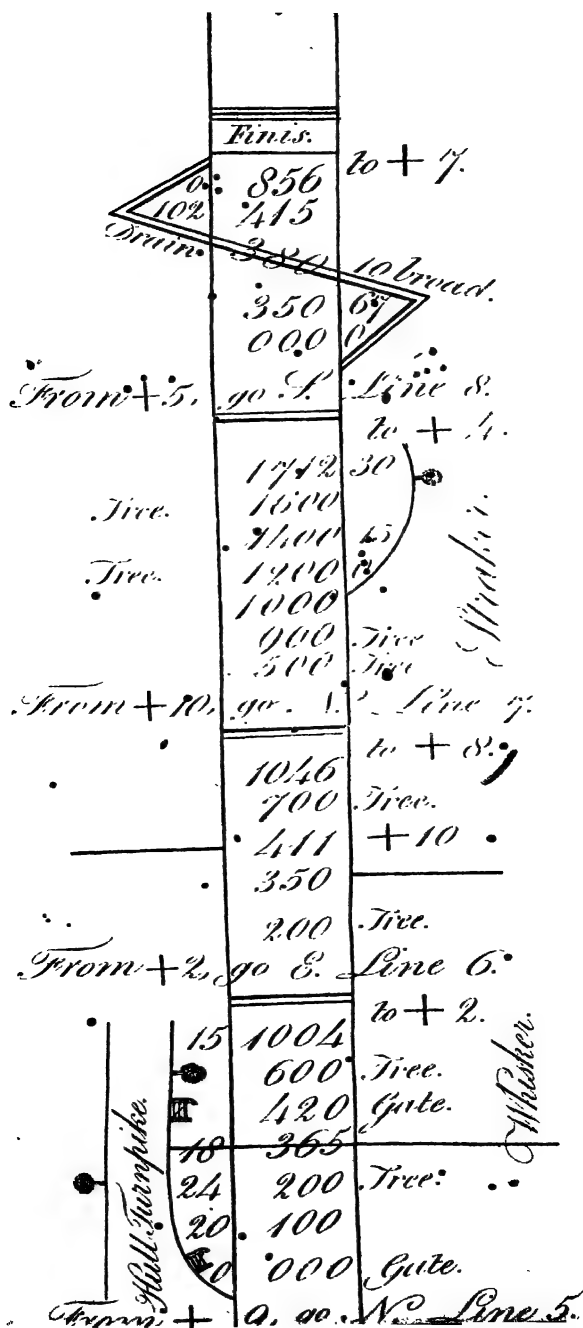 Finis.
0 856 to + 7.
102 415
Drain. 380 10 broad.
350 67
000 0
From + 5, go S. Line 8.
to + 4.
1712 30
Tree. 1600
1400 45
Tree. 1200 0
1000
900 Tree
500 Tree
From + 10, go N. Line 7.
to + 8.
1046
700 Tree.
411 + 10
350
200 Tree.
From + 2, go E. Line 6.
to + 2.
15 1004
600 Tree.
420 Gate.
18 365
24 200 Tree.
20 100
0 000 Gate.
From + 9, go N. Line 5.
Hull Turnpike.
Whisker.